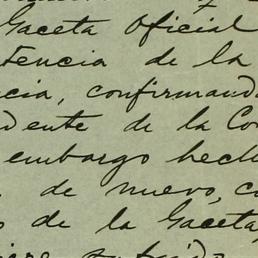 Gaceta Oficial
tencia de la
cia, confirmand
dente de la Co
embargo hech
de nuevo, c
s de la Gaceta,